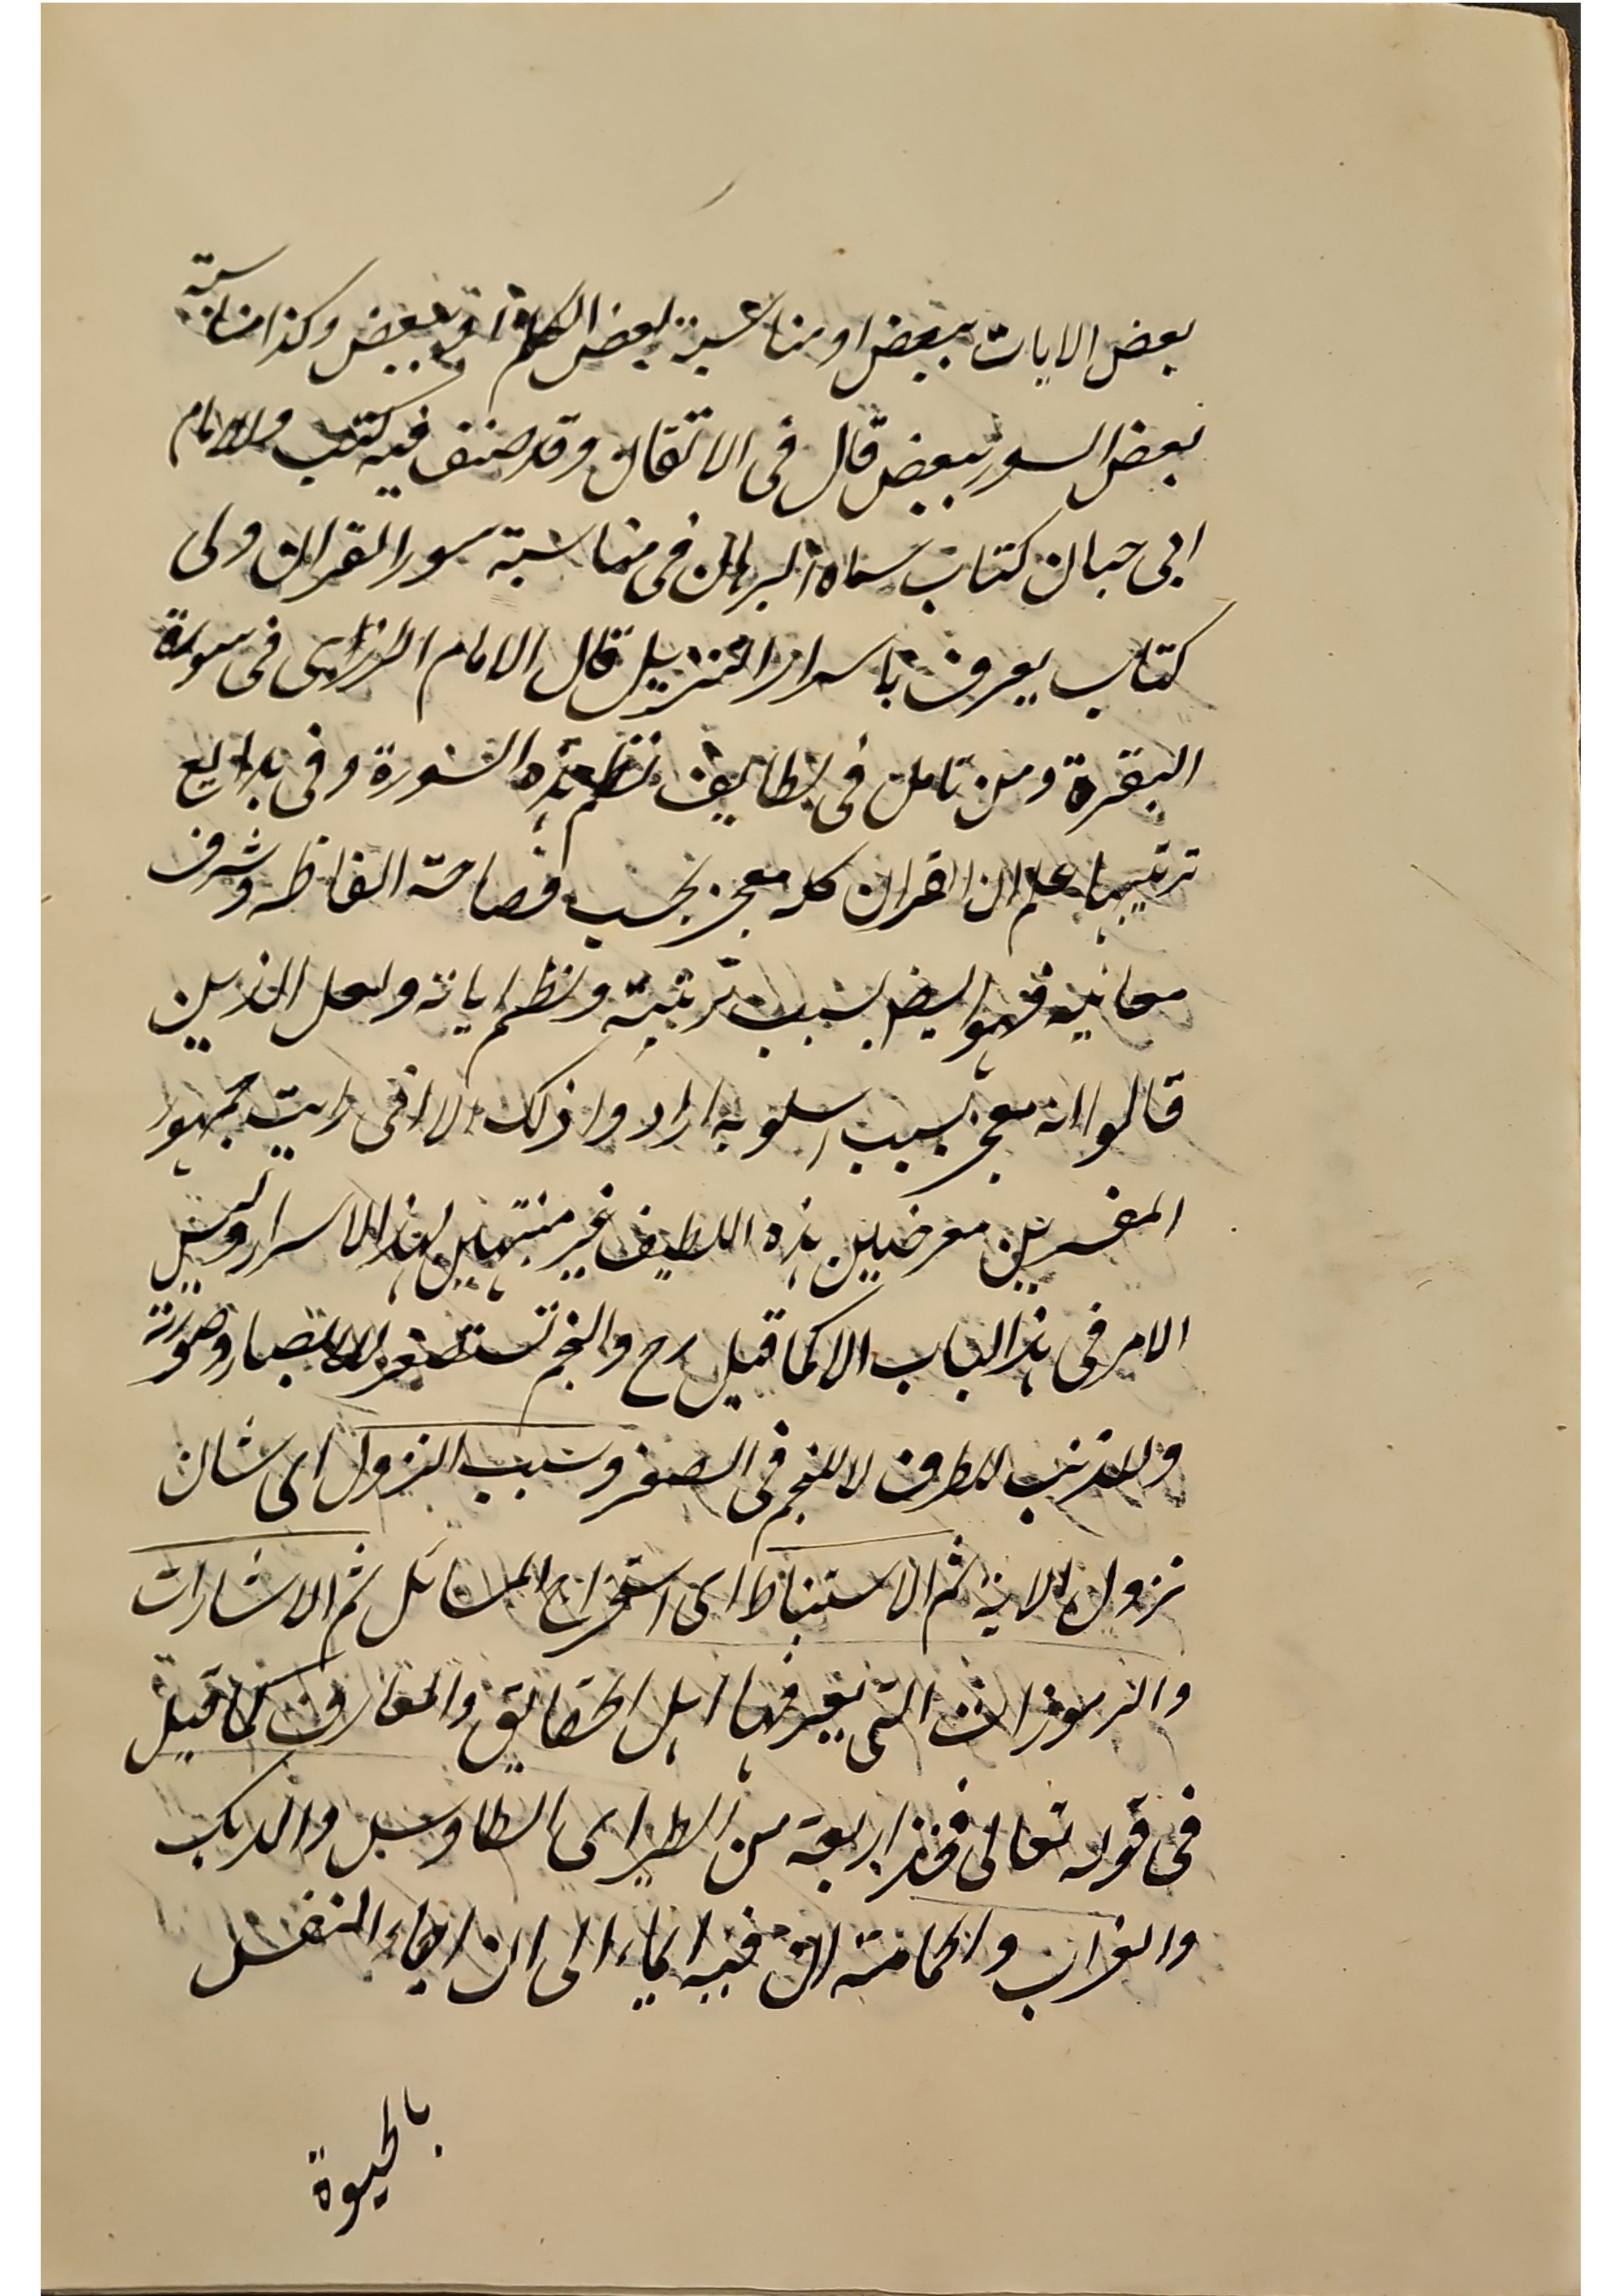 بعض الايات ببعض او مناسبة بعض الكلمات ببعض وكذا مناسبة
بعض السور ببعض قال فى الاتقان وقد صنف فيه كتب والامام
ابى حيان كتاب سماه البرهان فى مناسبة سور القران ولى
كتاب يعرف باسرار التنزيل قال الامام الرازى فى سورة
البقرة ومن تامل فى لطايف نظم هذه السورة وفى بدايع
ترتيبها علم ان القران كله معجز بحسب فصاحة الفاظه وشرف
معانيه فهو ايضا بسبب ترتيبة ونظم اياته ولعل الذين
قالوا انه معجز بسبب اسلوبه ارادوا ذلك الا انى رايت جمهور
المفسرين معرضين هذه اللطيف غير منتبهين لهذا الاسرار وليس
الامر فى هذا الباب الا كما قيل رح والنجم تستصغر الابصار صورته
والذنب للطرف لا للنجم فى الصغر وسبب النزول اى شان
نزول الاية ثم الاستنباط اى استخراج المسائل ثم الاشارات
والرموزات التى يعرفها اهل الحقايق والمعارف كما قيل
فى قوله تعالى فخذ اربعة من الطير اى الطاوس والديك
والغراب والحمامة ان فيه ايماء الى ان احياء النفس
بالحيوة